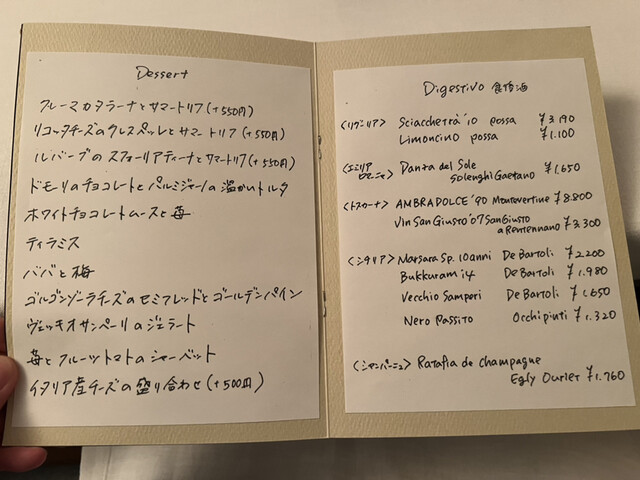 Dessert
クレーマカタラーナとサマートリフ(+550円)
リコッタチーズのクレスペッレとサマートリフ(+550円)
ルバーブのスフォリアティーナとサマートリフ(+550円)
ドモーリのチョコレートとパルミジャーノの温かいトルタ
ホワイトチョコレートムースと苺
ティラミス
ババと梅
ゴルゴンゾーラチーズのセミフレッドとゴールデンパイン
ヴェッキオサンペーリのジェラート
苺とフルーツトマトのシャーベット
イタリア産チーズの盛り合わせ(+500円)
Digestivo 食後酒
<リグーリア> Sciacchetrà '10 possa ¥3.190
Limoncino possa ¥1.100
<エミリア ロマーニャ> Danza del Sole ¥1,650
Solenghi Gaetano
<トスカーナ> AMBRADOLCE '90 Montevertine ¥8.800
Vin San Giusto '07 San Giusto
a Rentennano ¥3.300
<シチリア> Marsara Sp. 10anni De Bartoli ¥2.200
Bukkuram 14 De Bartoli ¥1.980
Vecchio Samperi De Bartoli ¥1,650
Nero Passito Occhipinti ¥1.320
<シャンパーニュ> Ratafia de champagne
Egly Ouriet ¥1.760